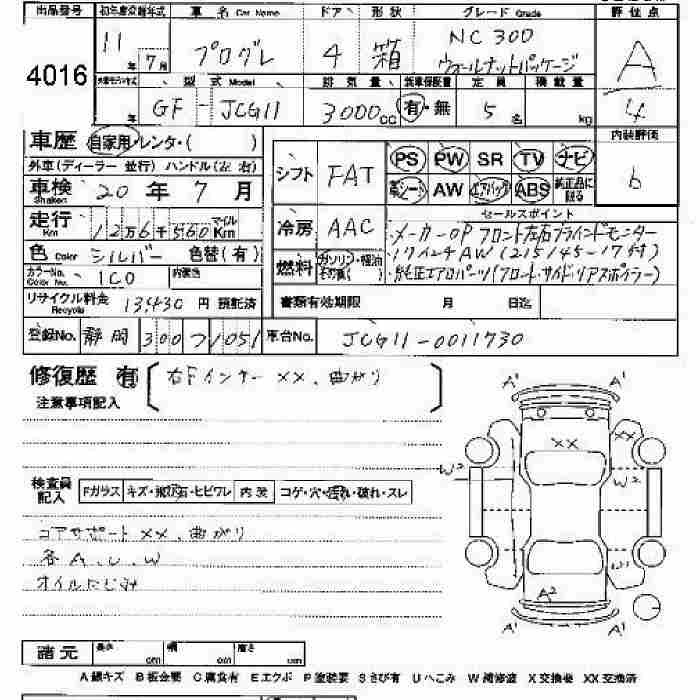 出品番号 初年度登録年式 車 名 Car Name ドア 形状 グレード Grade 評価点
4016 11年 7月 プログレ 4 箱 NC300 ウォールナットパッケージ A 4
型 式 Model 排 気 量 新車保証書 定 員 積 載 量
GF-JCG11 3000cc 有・無 5名 kg 内装評価
b
車歴 自家用・レンタ・( )
外車(ディーラー 並行) ハンドル(左 右)
車検 Shaken 20年 7月
走行 Km 12万6千560 マイル Km
色 Color シルバー 色替(有)
カラーNo. Color No. 1C0 内装色
リサイクル料金 Recycle 13,430 円 預託済
登録No. 静岡 300 051
シフト FAT PS PW SR TV ナビ
革シート AW エアバッグ ABS 純正品に限る
冷房 AAC セールスポイント
メーカーOP フロント左右ブラインドモニター
17インチAW(215/45-17付)
純正エアロパーツ(フロント・サイド・リアスポイラー)
燃料 ガソリン・軽油 その他( )
書類有効期限 月 日迄
車台No. JCG11-0011730
修復歴 有 [右Fインナー××、曲がり]
注意事項記入
検査員記入 Fガラス キズ・飛石・ヒビワレ 内装 コゲ・穴・汚れ・破れ・スレ
コアサポート ××、曲がり
各 A、U、W
オイルにじみ
A' A'
×× ××
W² W²
A²
A' A'
諸元 長さ cm 幅 cm 高さ cm
A 線キズ B 板金要 C 腐食有 E エクボ P 塗装要 S さび有 U へこみ W 補修波 X 交換要 XX 交換済